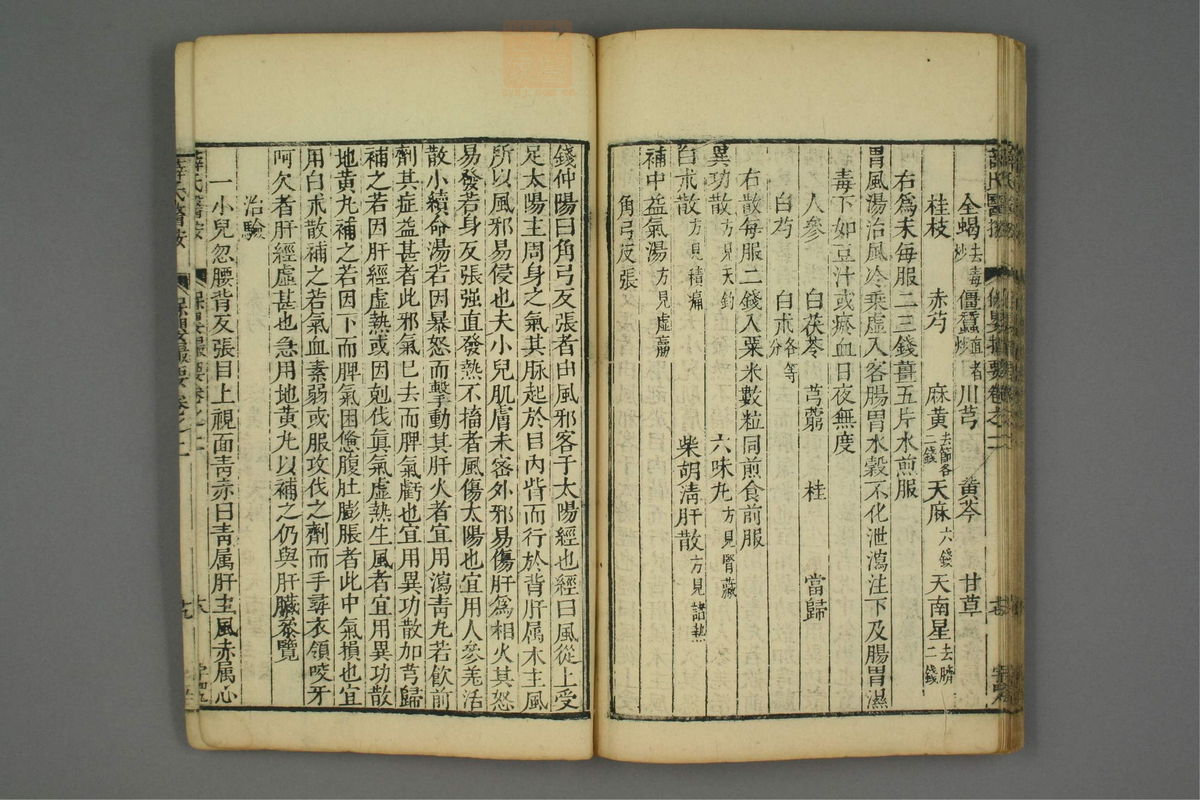 全蝎去毒炒 僵蠶直者炒 川芎 黃芩 甘草
桂枝 赤芍 麻黃去節各二錢 天麻六錢 天南星去臍二錢
右爲末每服二三錢薑五片水煎服
胃風湯治風冷乘虛入客腸胃水穀不化泄瀉注下及腸胃濕
毒下如豆汁或瘀血日夜無度
人參 白茯苓 芎藭 桂 當歸
白芍 白朮各等分
右散每服二錢入粟米數粒同煎食前服
異功散方見天釣 六味丸方見腎臟
白朮散方見積痛 柴胡清肝散方見諸熱
補中益氣湯方見虛羸
角弓反張
錢仲陽曰角弓反張者由風邪客于太陽經也經曰風從上受
足太陽主周身之氣其脉起於目內眥而行於背肝属木主風
所以風邪易侵也夫小兒肌膚未密外邪易傷肝爲相火其怒
易發若身反張强直發熱不搐者風傷太陽也宜用人參羌活
散小續命湯若因暴怒而擊動其肝火者宜用瀉青丸若飲前
劑其症益甚者此邪氣已去而脾氣虧也宜用異功散加芎歸
補之若因肝經虛熱或因剋伐眞氣虛熱生風者宜用異功散
地黃丸補之若因下而脾氣困憊腹肚膨脹者此中氣損也宜
用白朮散補之若氣血素弱或服攻伐之劑而手尋衣領咬牙
呵欠者肝經虛甚也急用地黃丸以補之仍與肝臟叅覽
治驗
一小兒忽腰背反張目上視面靑赤曰靑属肝主風赤属心
薛氏醫按
保嬰撮要卷之二